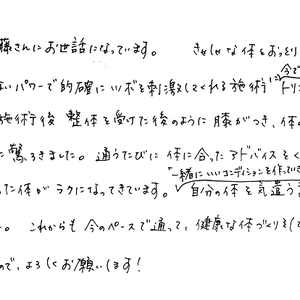 藤さんにお世話になっています。 きゃしゃな体とおっとり
ないパワーで的確にツボを刺激してくれる施術に今で
トリ
施術後 整体を受けた後のように膝がつき、体
に驚ろきました。通うたびに体に合ったアドバイスをく
"一緒にいいコンディションを作ってい
った体がラクになってきています。自分の体を気遣う
。これからも今のペースで通って、健康な体づくりを
ので、よろしくお願いします!